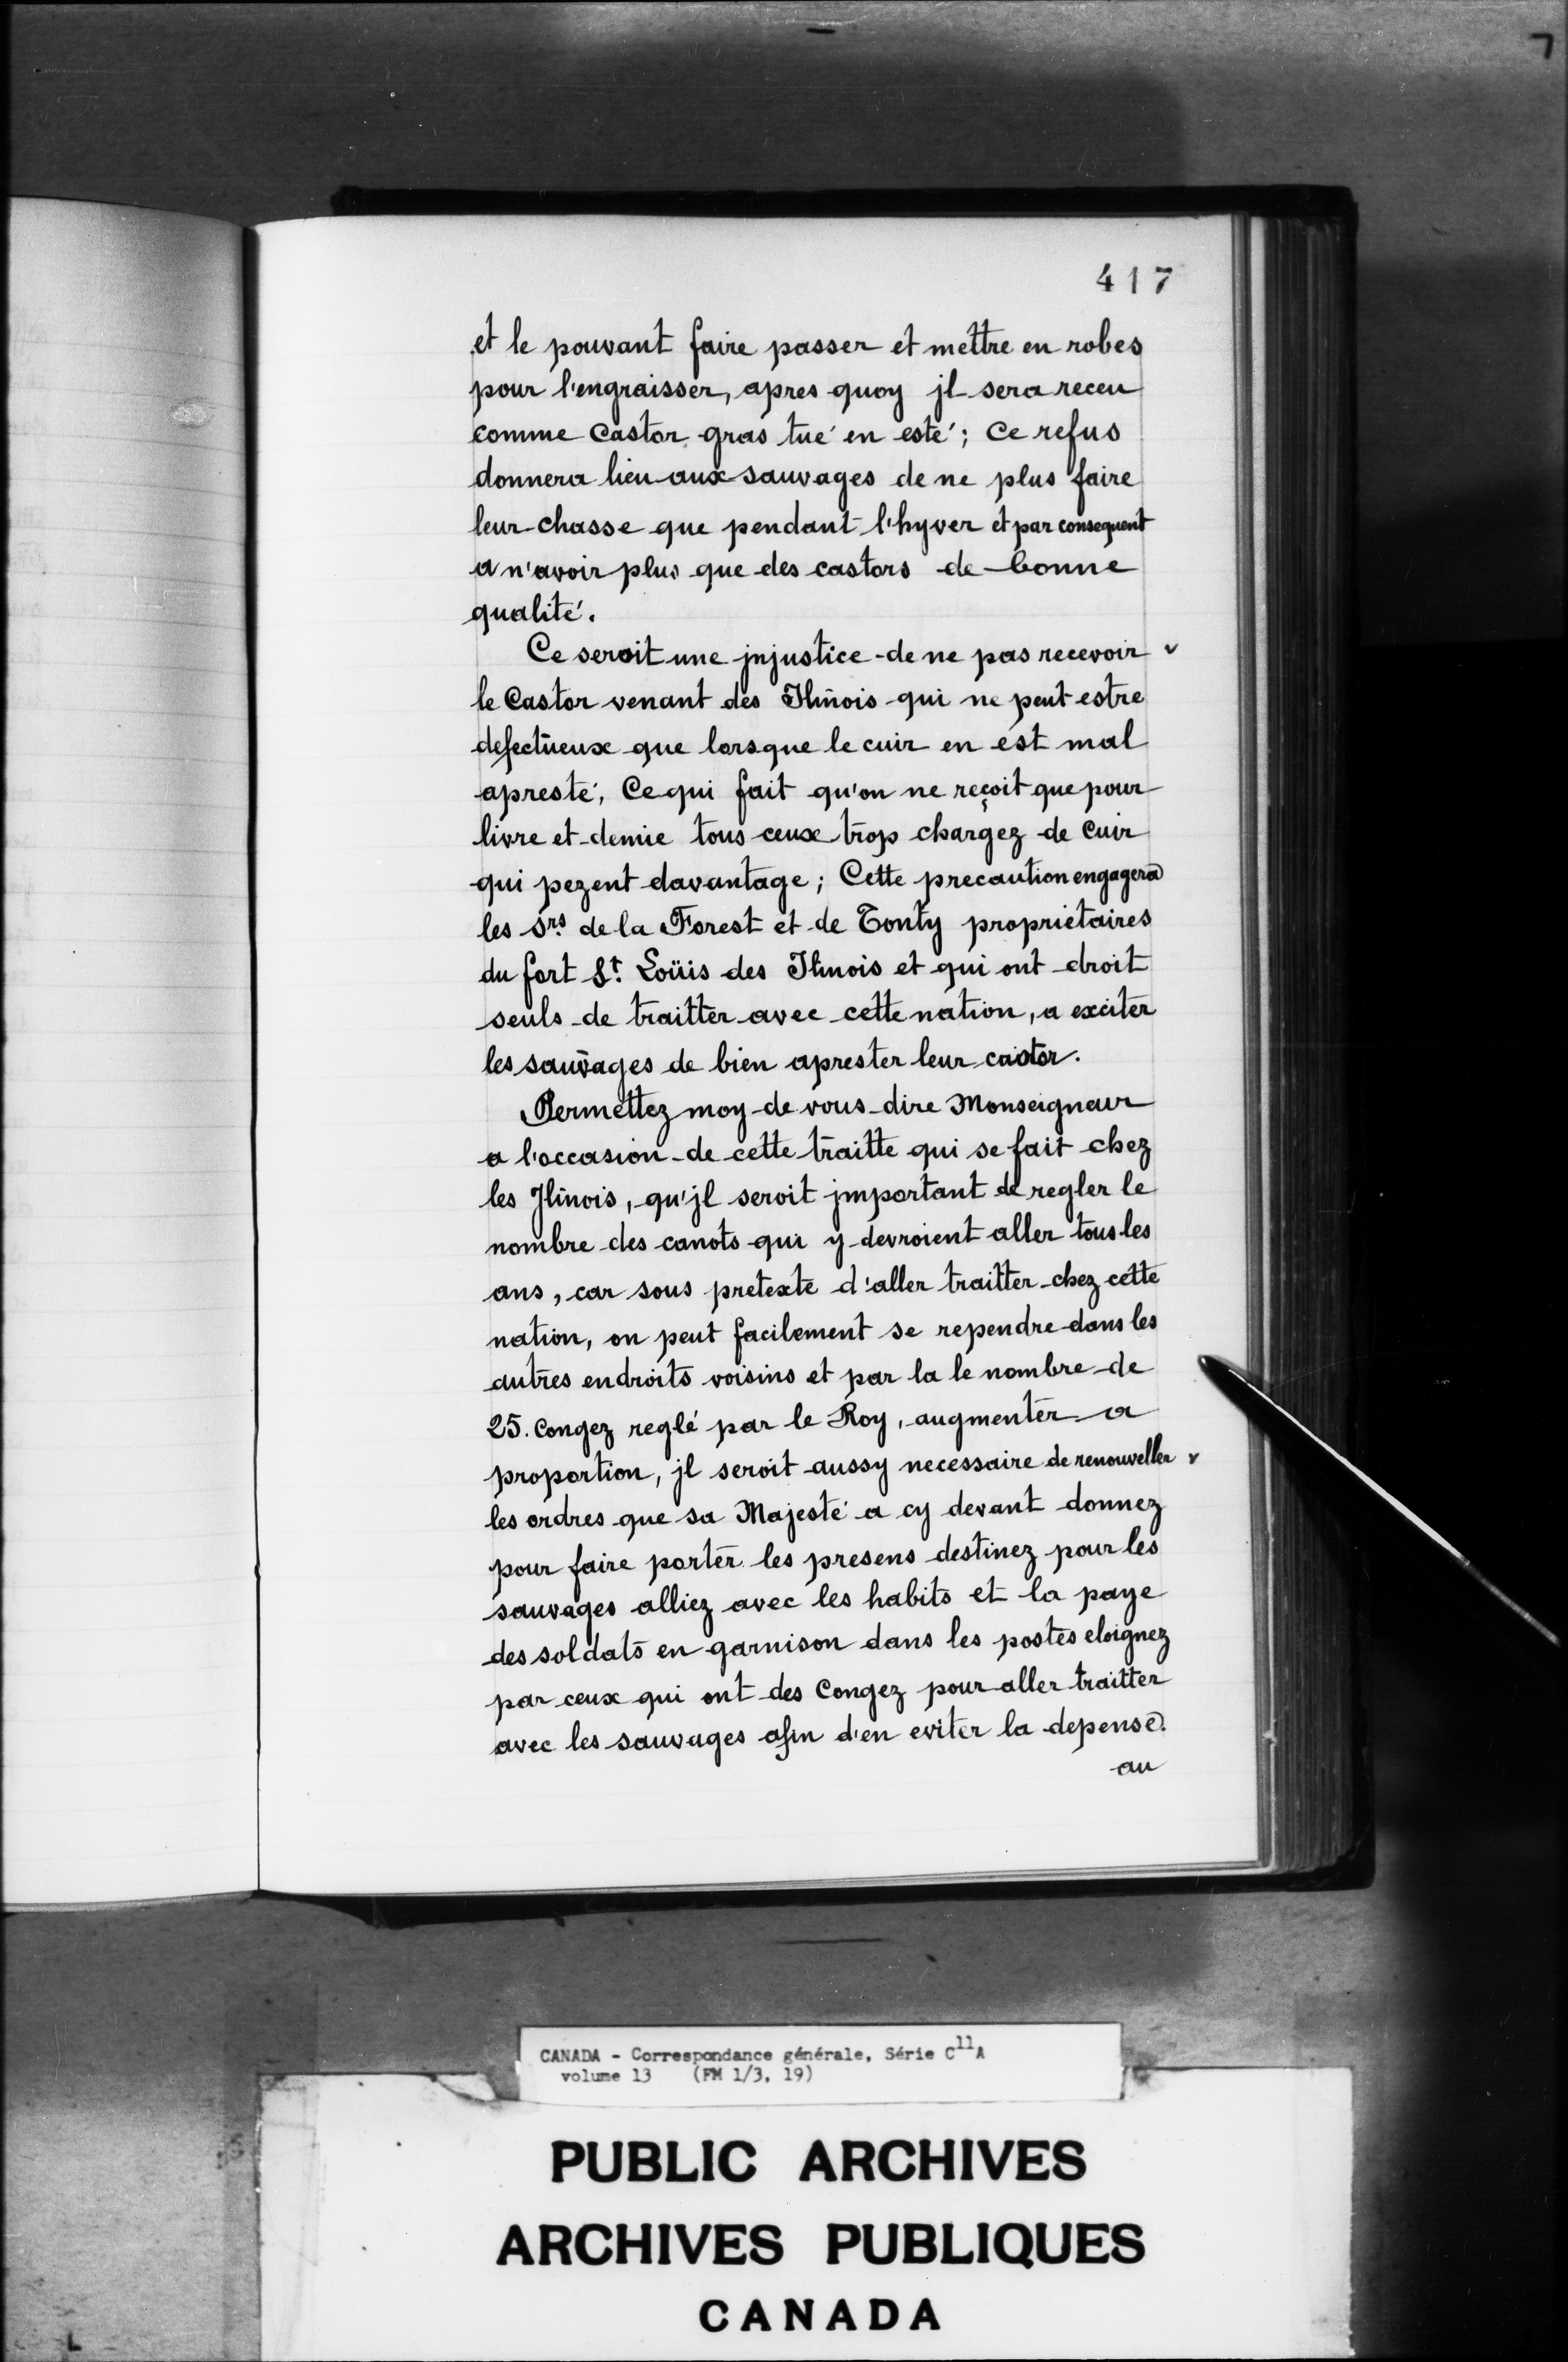 417
et le pouvant faire passer et mettre en robes
pour l'engraisser, apres quoy jl sera receu
comme Castor gras tué en esté; Ce refus
donnera lieu aux sauvages de ne plus faire
leur chasse que pendant l'hyver et par consequent
a n'avoir plus que des castors de bonne
qualité.
Ce seroit une jnjustice de ne pas recevoir v
le Castor venant des Ilinois qui ne peut estre
defectueux que lorsque le cuir en est mal
apresté, Ce qui fait qu'on ne reçoit que pour
livre et demie tous ceux trop chargez de cuir
qui pezent davantage; Cette precaution engagera
les Srs. de la Forest et de Tonty propriétaires
du fort St. Loüis des Ilinois et qui ont droit
seuls de traitter avec cette nation, a exciter
les sauvages de bien aprester leur castor.
Permettez moy de vous dire Monseigneur
a l'occasion de cette traitte qui se fait chez
les Jlinois, qu'jl seroit jmportant de regler le
nombre des canots qui y devroient aller tous les
ans, car sous pretexte d'aller traitter chez cette
nation, on peut facilement se rependre dans les
autres endroits voisins et par la le nombre de
25. Congez reglé par le Roy, augmenter a
proportion, jl seroit aussy necessaire de renouveller v
les ordres que sa Majesté a cy devant donnez
pour faire porter les presens destinez pour les
sauvages alliez avec les habits et la paye
des soldats en garnison dans les postes eloignez
par ceux qui ont des Congez pour aller traitter
avec les sauvages afin d'en eviter la depense.
au
CANADA - Correspondance générale, Série C11A
volume 13 (FM 1/3, 19)
PUBLIC ARCHIVES
ARCHIVES PUBLIQUES
CANADA